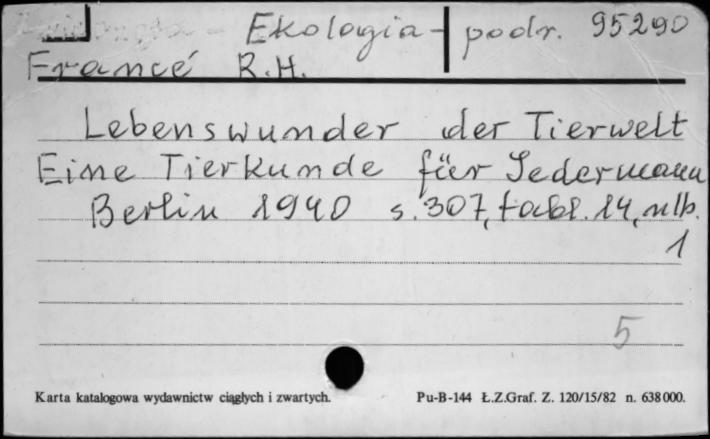 Ekologia - podr. 95290
Francé R.H.
Lebenswunder der Tierwelt
Eine Tierkunde für Jedermann
Berlin 1940 s. 307, tabl. 14, nlb.
1
5
Karta katalogowa wydawnictw ciągłych i zwartych. Pu-B-144 Ł.Z.Graf. Z. 120/15/82 n. 638000.